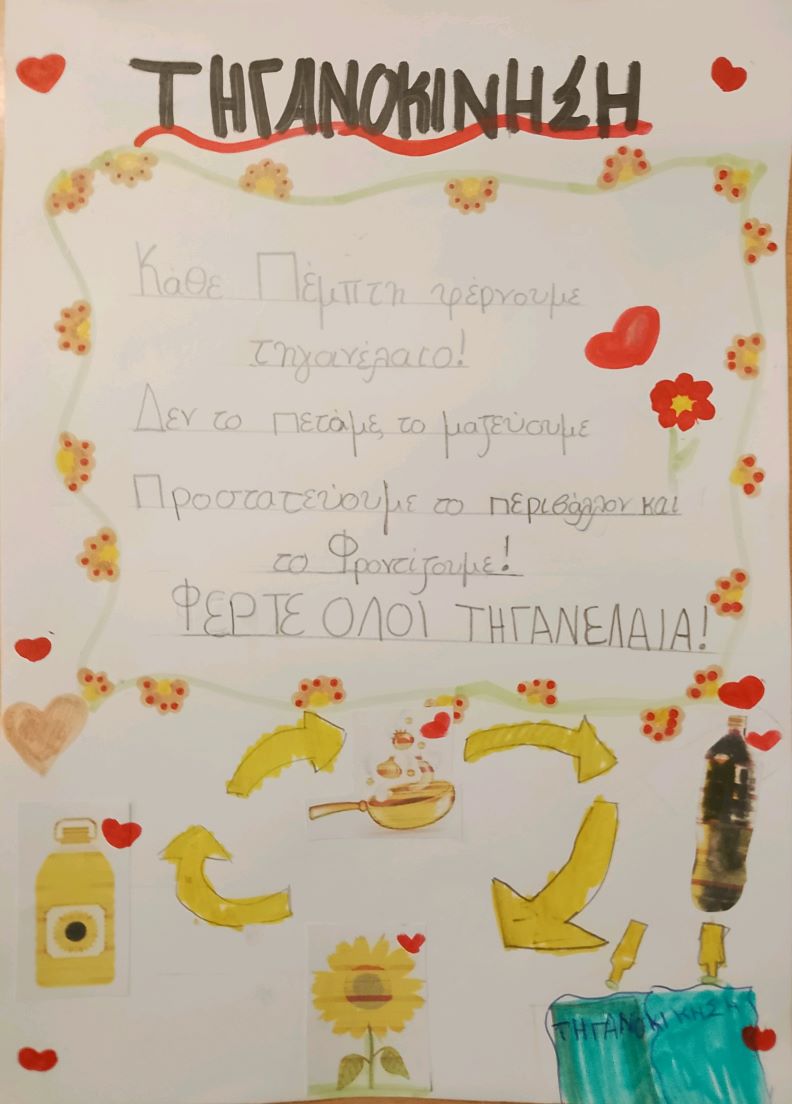 ΤΗΓΑΝΟΚΙΝΗΣΗ
Κάθε Πέμπτη φέρνουμε
τηγανέλαιο!
Δεν το πετάμε, το μαζεύουμε
Προστατεύουμε το περιβάλλον και
το Φροντίζουμε!
ΦΕΡΤΕ ΟΛΟΙ ΤΗΓΑΝΕΛΑΙΑ!
ΤΗΓΑΝΟΚΙΚΗΣΗ